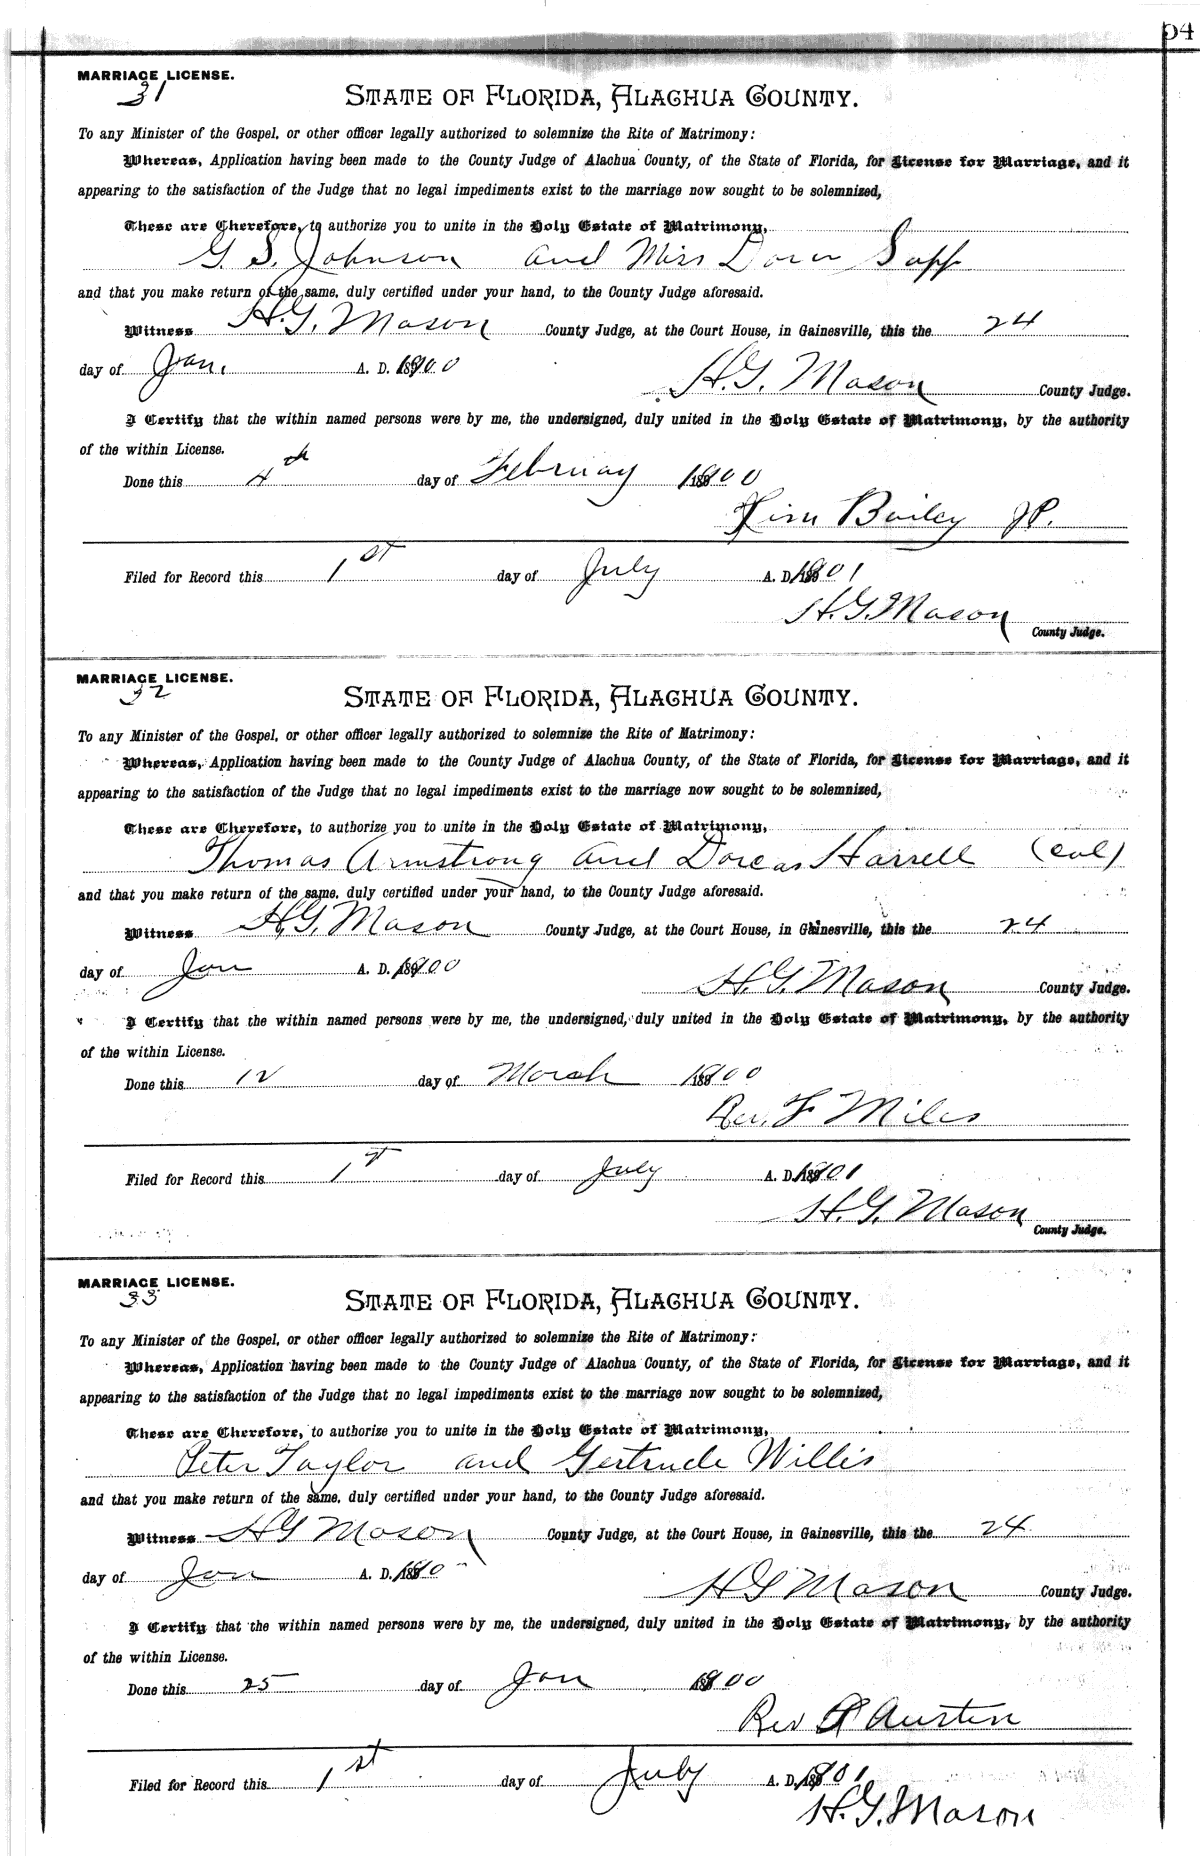 54
MARRIAGE LICENSE.
31
STATE OF FLORIDA, ALACHUA COUNTY.
To any Minister of the Gospel, or other officer legally authorized to solemnize the Rite of Matrimony:
Whereas, Application having been made to the County Judge of Alachua County, of the State of Florida, for License for Marriage, and it
appearing to the satisfaction of the Judge that no legal impediments exist to the marriage now sought to be solemnized,
These are Therefore, to authorize you to unite in the Holy Estate of Matrimony,
G. S. Johnson and Miss Dora Sapp
and that you make return of the same, duly certified under your hand, to the County Judge aforesaid.
Witness H. G. Mason County Judge, at the Court House, in Gainesville, this the 24
day of Jan. A. D. 1900
H. G. Mason County Judge.
I Certify that the within named persons were by me, the undersigned, duly united in the Holy Estate of Matrimony, by the authority
of the within License.
Done this 4th day of February 1900
Bailey JP.
Filed for Record this 1st day of July A. D. 1901
H. G. Mason
County Judge.
MARRIAGE LICENSE.
32
STATE OF FLORIDA, ALACHUA COUNTY.
To any Minister of the Gospel, or other officer legally authorized to solemnize the Rite of Matrimony:
Whereas, Application having been made to the County Judge of Alachua County, of the State of Florida, for License for Marriage, and it
appearing to the satisfaction of the Judge that no legal impediments exist to the marriage now sought to be solemnized,
These are Therefore, to authorize you to unite in the Holy Estate of Matrimony,
Thomas Armstrong and Dorcas Harrell (col)
and that you make return of the same, duly certified under your hand, to the County Judge aforesaid.
Witness H. G. Mason County Judge, at the Court House, in Gainesville, this the 24
day of Jan A. D. 1900
H. G. Mason County Judge.
I Certify that the within named persons were by me, the undersigned, duly united in the Holy Estate of Matrimony, by the authority
of the within License.
Done this 12 day of March 1900
Rev. F Miles
Filed for Record this 1st day of July A. D. 1901
H. G. Mason
County Judge.
MARRIAGE LICENSE.
33
STATE OF FLORIDA, ALACHUA COUNTY.
To any Minister of the Gospel, or other officer legally authorized to solemnize the Rite of Matrimony:
Whereas, Application having been made to the County Judge of Alachua County, of the State of Florida, for License for Marriage, and it
appearing to the satisfaction of the Judge that no legal impediments exist to the marriage now sought to be solemnized,
These are Therefore, to authorize you to unite in the Holy Estate of Matrimony,
Peter Taylor and Gertrude Willis
and that you make return of the same, duly certified under your hand, to the County Judge aforesaid.
Witness H G Mason County Judge, at the Court House, in Gainesville, this the 24
day of Jan A. D. 190
H G Mason County Judge.
I Certify that the within named persons were by me, the undersigned, duly united in the Holy Estate of Matrimony, by the authority
of the within License.
Done this 25 day of Jan 1900
Rev Austin
Filed for Record this 1st day of July A. D. 1901
H. G. Mason